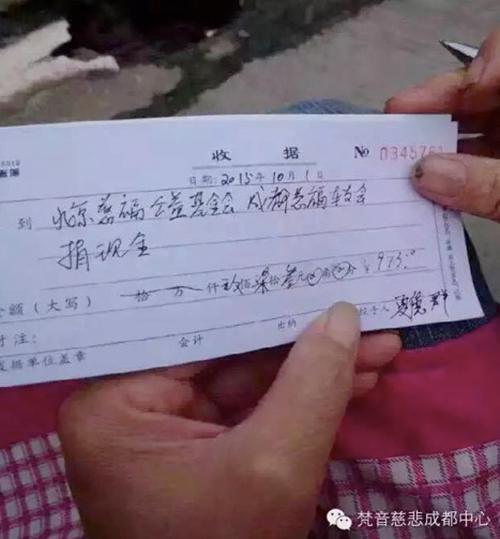 收据 No 0345761
日期:2015年10月1日
到 北京慈福公益基金会 成都慈福车友会
捐现金
金额（大写） 拾 万 仟玖佰柒拾叁元 角 分 ￥973.0
备注:
收据单位盖章 会计 出纳 经手人
梵音慈悲成都中心